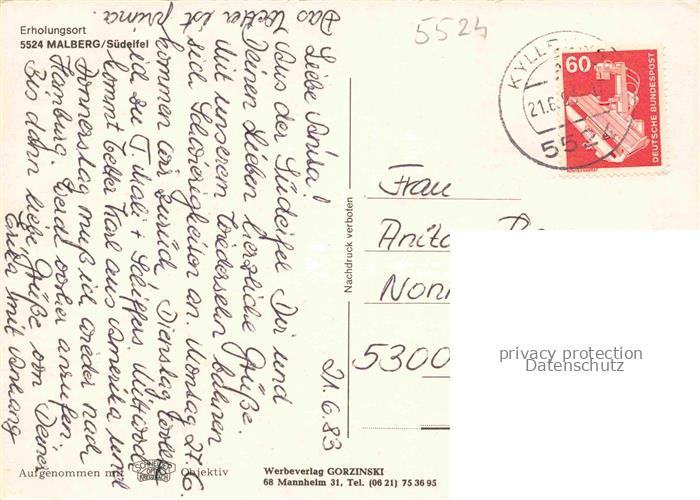 Erholungsort
5524 MALBERG/Südeifel
5524
KYLL
21.6.
5524
60
DEUTSCHE BUNDESPOST
21.6.83
Liebe Anita!
Aus der Südeifel Dir und
Deinen Lieben herzliche Grüße.
Mit unserem Wiedersehn bahnen
sich Schwierigkeiten an. Montag 27.6.
kommen wir zurück, Dienstag
ich zu T. + Schiffers. Mittwoch
kommt Vetter Karl aus Amerika und
Donnerstag muß ich wieder nach
Hamburg. Werd vorher anrufen.
Bis dahin liebe Grüße von Deiner
Erika mit Anhang
Das Wetter ist prima.
Nachdruck verboten
Frau
Anita
Non
5300
privacy protection
Datenschutz
Aufgenommen mit
SCHNEIDER
KREUZNACH
Objektiv
Werbeverlag GORZINSKI
68 Mannheim 31, Tel. (06 21) 75 36 95